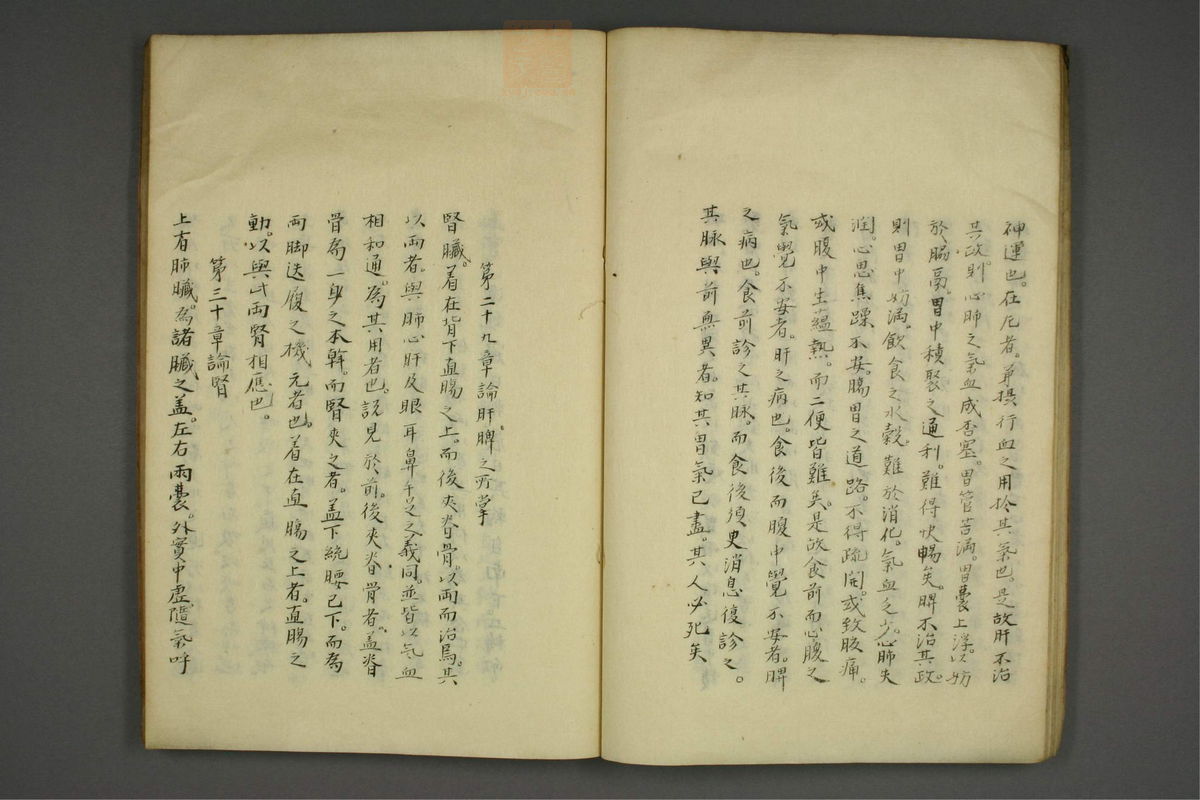 神運也。在尼者。專摂行血之用於其氣也。是故肝不治
其政。則心肺之氣血咸否塞。胃管苦満。胃囊上浮。以妨
於膈鬲。胃中積聚之通利。難得快暢矣。脾不治其政。
則胃中妨満。飲食之水穀。難於消化。氣血乏少。心肺失
潤。心思焦躁不安。腸胃之道路。不得疏開。或致腹痛。
或腹中生蘊熱。而二便皆難矣。是故食前而心腹之
氣覺不安者。肝之病也。食後而腹中覺不安者。脾
之病也。食前診之其脉。而食後須臾消息復診之。
其脉與前無異者。知其胃氣已盡。其人必死矣
第二十九章論肝脾之所掌
腎臓。着在背下直腸之上。而後夾脊骨。以両而治焉。其
以両者。與肺心肝及眼耳鼻手足之義同。並皆以气血
相和通。為其用者也。説見於前。後夾脊骨者。盖脊
骨為一身之本幹。而腎夾之者。盖下統腰已下。而為
両脚迭履之機元者也。着在直腸之上者。直腸之
動。以與此両腎相應也。
第三十章論腎
上有肺臓。為諸臓之盖。左右両囊。外實中虚。隨氣呼